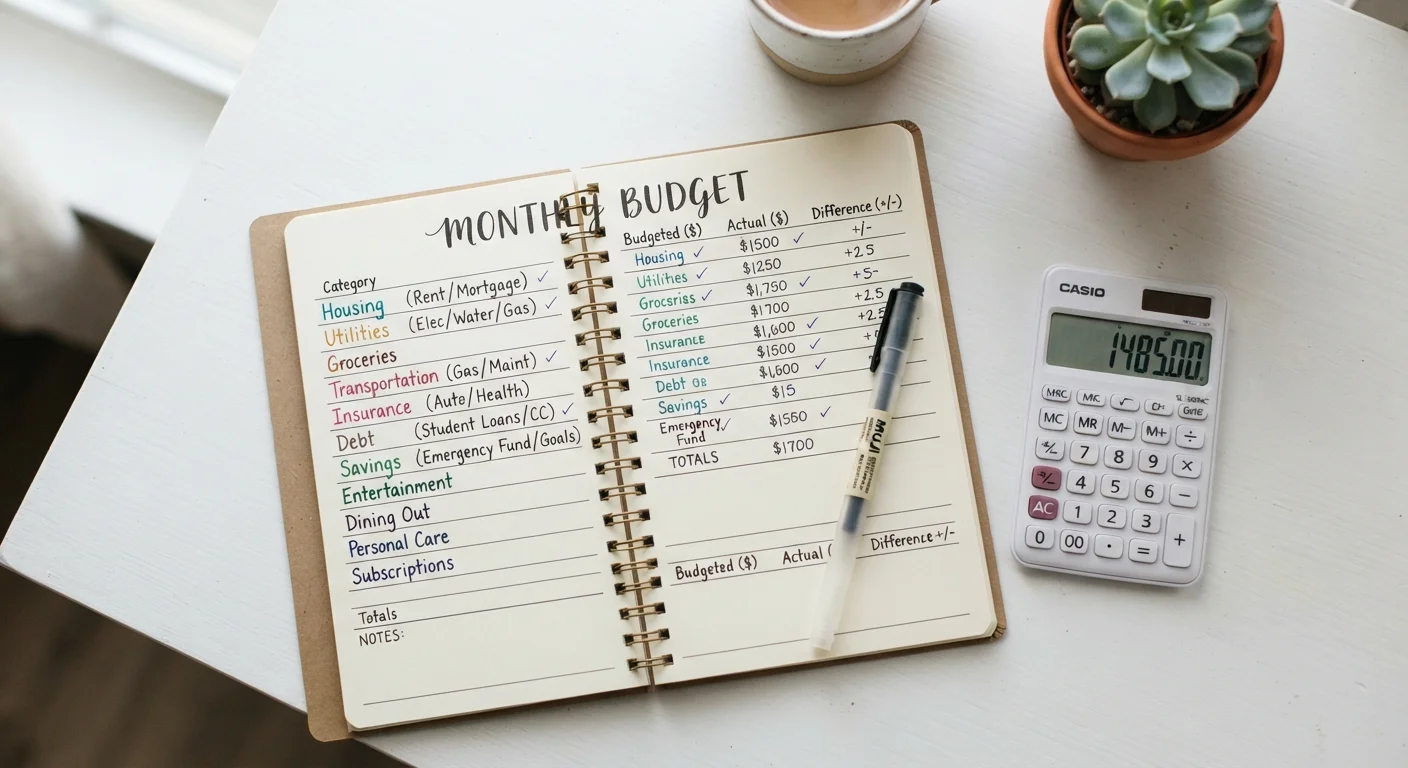 MONTHLY BUDGET
Category
Housing (Rent/Mortgage) ✓
Utilities (Elec/Water/Gas) ✓
Groceries
Transportation (Gas/Maint) ✓
Insurance (Auto/Health)
Debt (Student Loans/CC) ✓
Savings (Emergency Fund/Goals)
Entertainment
Dining Out
Personal Care
Subscriptions
Totals
NOTES:
Budgeted ($) Actual ($) Difference (+/-)
Housing ✓ $1500 ✓ +/-
Utilities ✓ $1250 +2.5
Grocsriss ✓ $1,750 ✓ +5-
Groceries $1700 +2.5
Insurance $1,600 ✓ +2.5
Insurance $1500 ✓
Debt $1,600 ✓
Savings ✓ $15
Emergency ✓ $1560 ✓
Fund
TOTALS $1700
Budgeted ($) Actual ( Difference +/-
MUJI
CASIO
1485.00
MRC MC √ CH
MC MR M- M+ ÷
7 8 9 ×
4 5 6 −
AC 1 2 3 +
0 00 · =